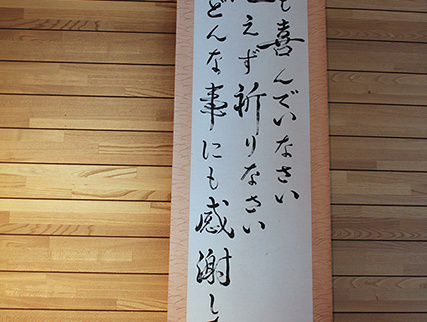 も喜んでいなさい
えず祈りなさい
どんな事にも感謝し